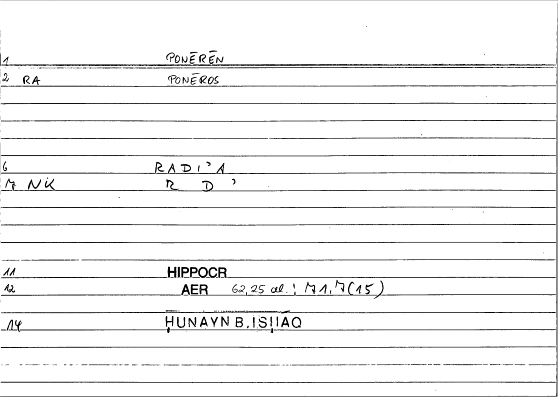 1 PONĒRĒN
2 RA PONĒROS
6 RADI'A
7 NK R D '
11 HIPPOCR
12 AER 62,25 al.; 71,7(15)
14 ḤUNAYN B. ISḤĀQ